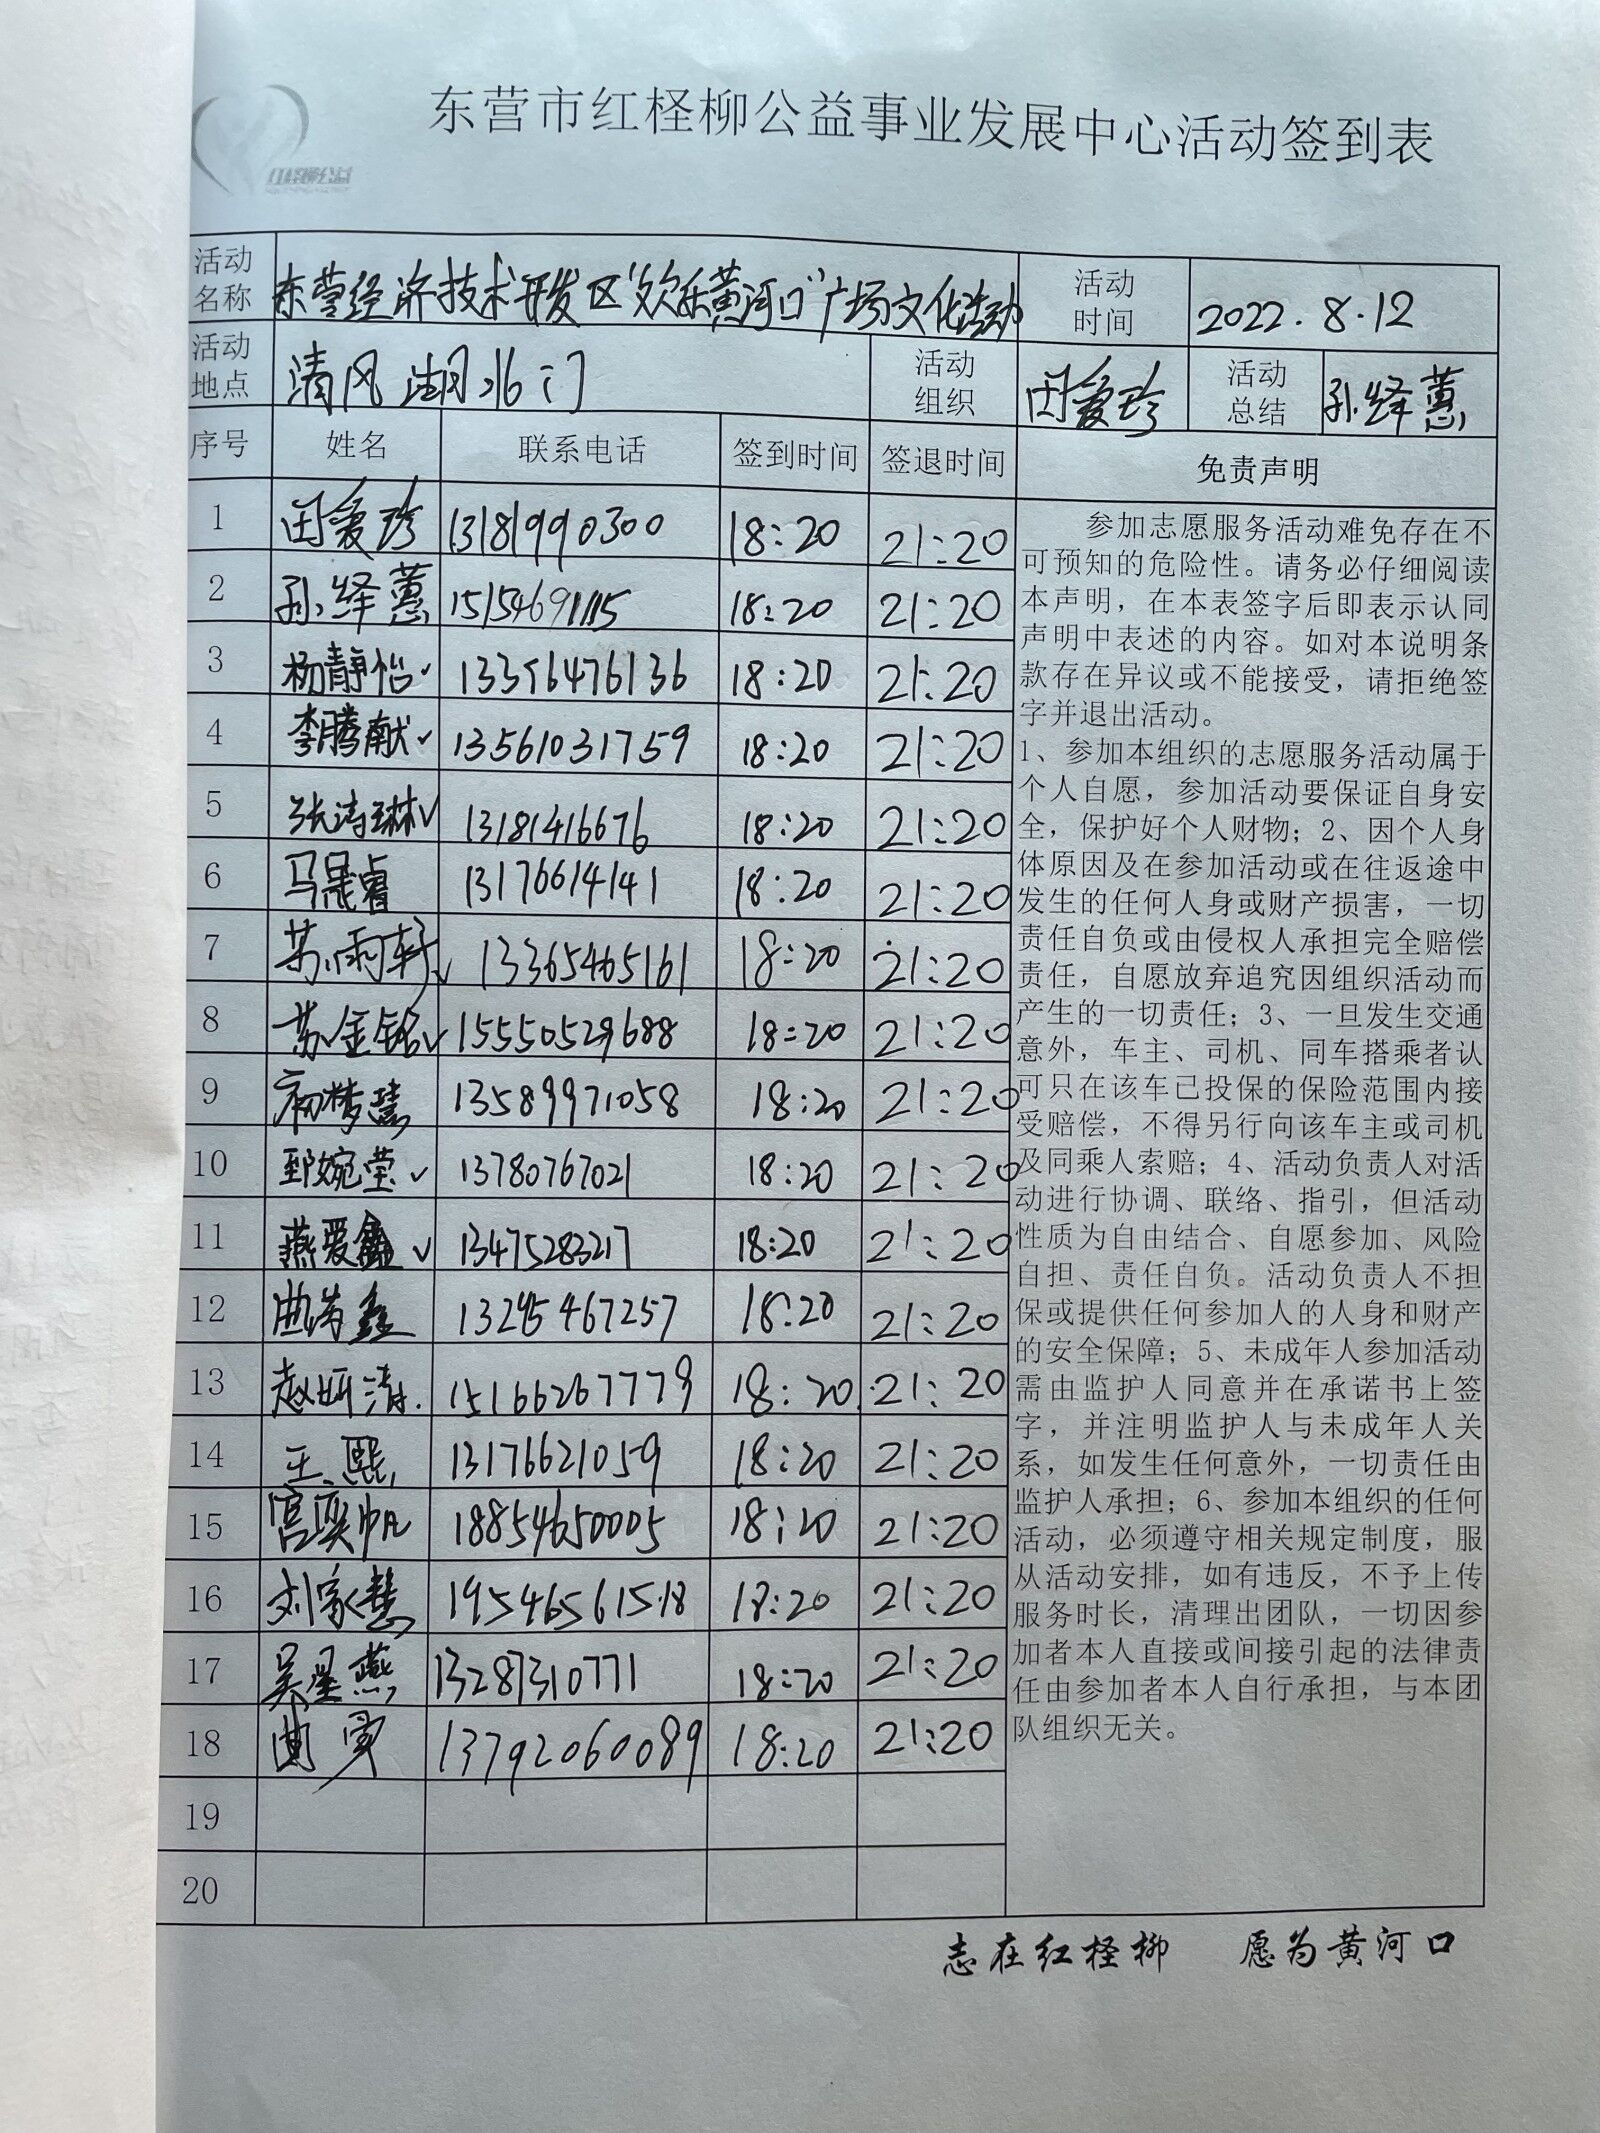 红柽柳公益
东营市红柽柳公益事业发展中心活动签到表
活动名称 东营经济技术开发区“欢乐黄河口”广场文化活动 活动时间 2022.8.12
活动地点 清风湖北门 活动组织 田爱珍 活动总结 孙绎蕙
序号 姓名 联系电话 签到时间 签退时间 免责声明
1 田爱珍 13181990300 18:20 21:20
2 孙绎蕙 15154691115 18:20 21:20
3 杨静怡✓ 13356476136 18:20 21:20
4 李腾献✓ 13561031759 18:20 21:20
5 张涛琳✓ 13181416676 18:20 21:20
6 马晟睿 13176614141 18:20 21:20
7 苏雨轩✓ 13365465161 18:20 21:20
8 苏金铭✓ 15550529688 18:20 21:20
9 初梦慧 13589971058 18:20 21:20
10 郅婉莹✓ 13780767021 18:20 21:20
11 燕爱鑫✓ 13475283217 18:20 21:20
12 曲 鑫 467257 18:20 21:20
13 赵妍清 15166267779 18:20 21:20
14 王熙 13176621059 18:20 21:20
15 宫奕帆 18854650005 18:20 21:20
16 刘家慧 19546561518 18:20 21:20
17 吴星燕 13287310771 18:20 21:20
18 曲 13792060089 18:20 21:20
19
20
参加志愿服务活动难免存在不
可预知的危险性。请务必仔细阅读
本声明，在本表签字后即表示认同
声明中表述的内容。如对本说明条
款存在异议或不能接受，请拒绝签
字并退出活动。
1、参加本组织的志愿服务活动属于
个人自愿，参加活动要保证自身安
全，保护好个人财物；2、因个人身
体原因及在参加活动或在往返途中
发生的任何人身或财产损害，一切
责任自负或由侵权人承担完全赔偿
责任，自愿放弃追究因组织活动而
产生的一切责任；3、一旦发生交通
意外，车主、司机、同车搭乘者认
可只在该车已投保的保险范围内接
受赔偿，不得另行向该车主或司机
及同乘人索赔；4、活动负责人对活
动进行协调、联络、指引，但活动
性质为自由结合、自愿参加、风险
自担、责任自负。活动负责人不担
保或提供任何参加人的人身和财产
的安全保障；5、未成年人参加活动
需由监护人同意并在承诺书上签
字，并注明监护人与未成年人关
系，如发生任何意外，一切责任由
监护人承担；6、参加本组织的任何
活动，必须遵守相关规定制度，服
从活动安排，如有违反，不予上传
服务时长，清理出团队，一切因参
加者本人直接或间接引起的法律责
任由参加者本人自行承担，与本团
队组织无关。
志在红柽柳 愿为黄河口